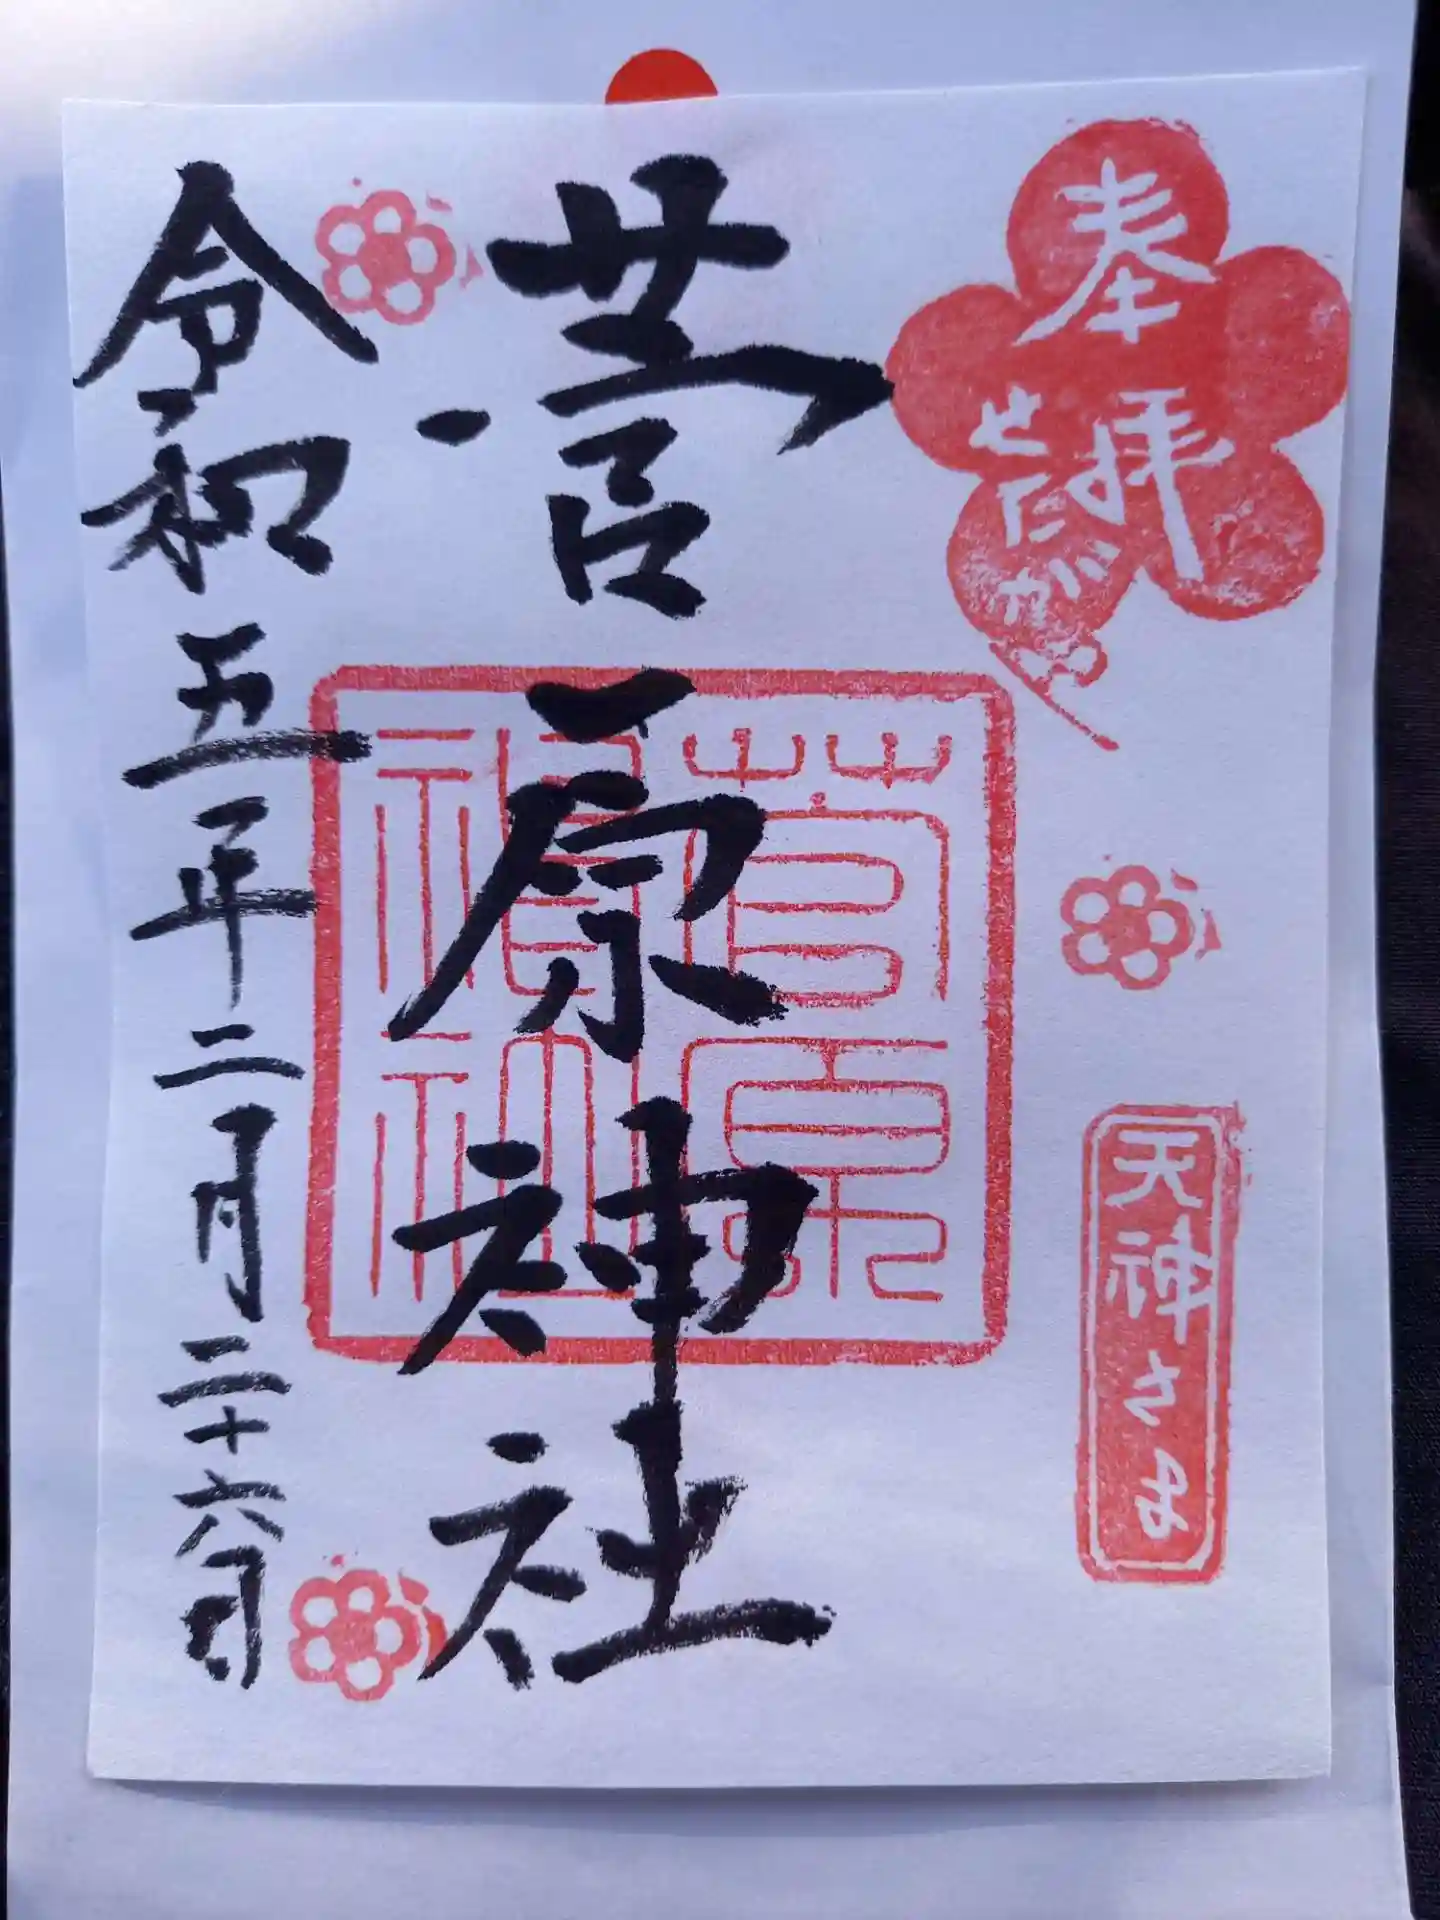 奉拝
せたがや
天神さま
菅原神社
菅原
神社
令和五年二月二十六日